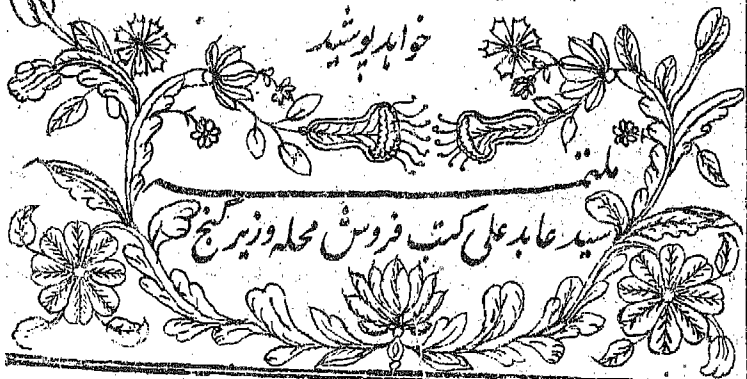 خواہد پوشید
ملتمـــــــس
سید عابد علی کتب فروش محلہ وزیر گنج